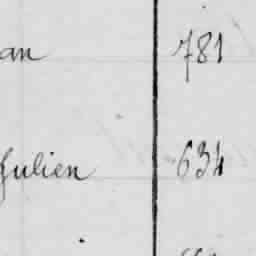 an 781
Julien 634